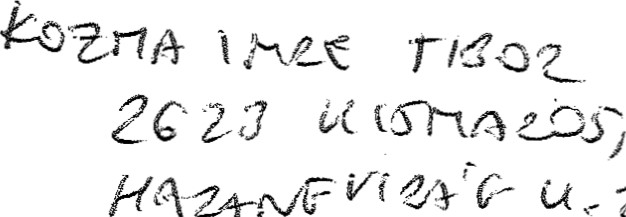 KOZMA IMRE TIBOR
2623 KISMAROS,
HAZANEVIRÁG U.